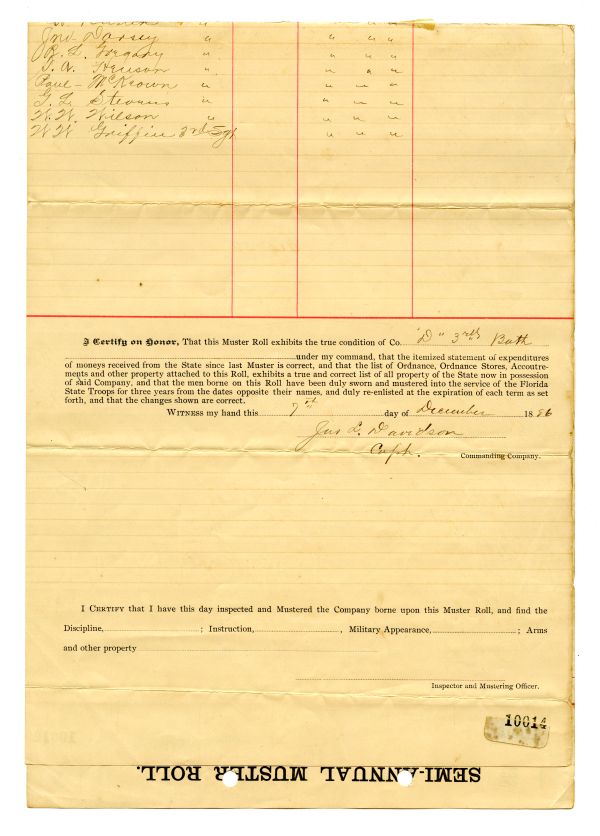 Jno Dorsey " " " "
R. L. Gregory " " " "
" " " "
Paul McKeown " " " "
G. L. Stevens " " " "
W. W. Wilson " " " "
W W Griffin 3rd Sgt " " "
I Certify on Honor, That this Muster Roll exhibits the true condition of Co. "D" 3rd Bath
under my command, that the itemized statement of expenditures
of moneys received from the State since last Muster is correct, and that the list of Ordnance, Ordnance Stores, Accoutre-
ments and other property attached to this Roll, exhibits a true and correct list of all property of the State now in possession
of said Company, and that the men borne on this Roll have been duly sworn and mustered into the service of the Florida
State Troops for three years from the dates opposite their names, and duly re-enlisted at the expiration of each term as set
forth, and that the changes shown are correct.
Witness my hand this 7th day of December 1886
Jno L. Davidson
Capt. Commanding Company.
I Certify that I have this day inspected and Mustered the Company borne upon this Muster Roll, and find the
Discipline, ; Instruction, , Military Appearance, ; Arms
and other property
Inspector and Mustering Officer.
10014
SEMI-ANNUAL MUSTER ROLL.